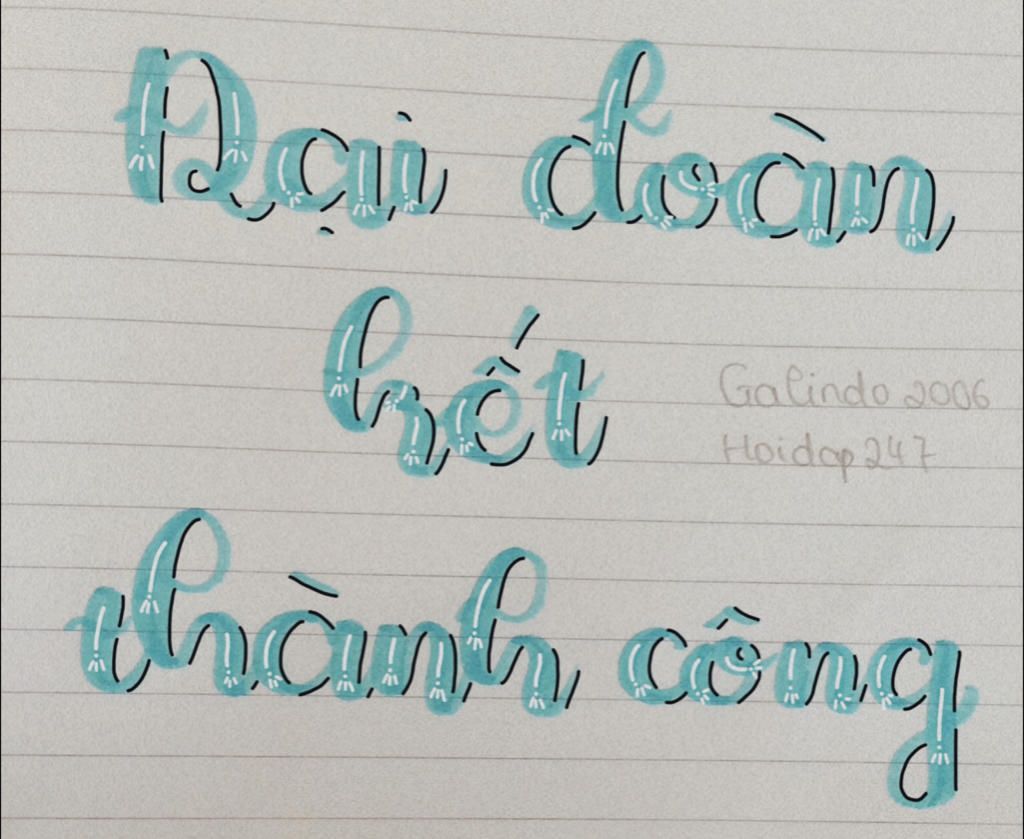 Đại đoàn
kết
Galindo 2006
Hoidap247
thành công